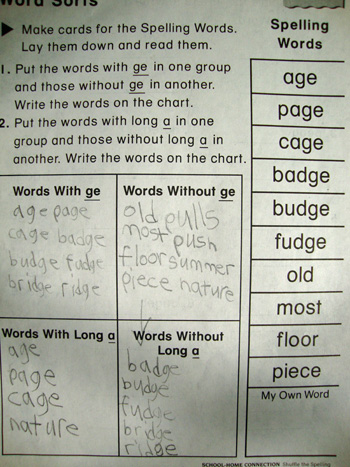 Word Sorts
Make cards for the Spelling Words.
Lay them down and read them.
1. Put the words with ge in one group
and those without ge in another.
Write the words on the chart.
2. Put the words with long a in one
group and those without long a in
another. Write the words on the chart.
Words With ge
age page
cage badge
budge fudge
bridge ridge
Words Without ge
old pulls
most push
floor summer
piece nature
Words With Long a
age
page
cage
nature
Words Without
Long a
badge
budge
fudge
bridge
ridge
Spelling
Words
age
page
cage
badge
budge
fudge
old
most
floor
piece
My Own Word
SCHOOL-HOME CONNECTION Shuffle the Spelling